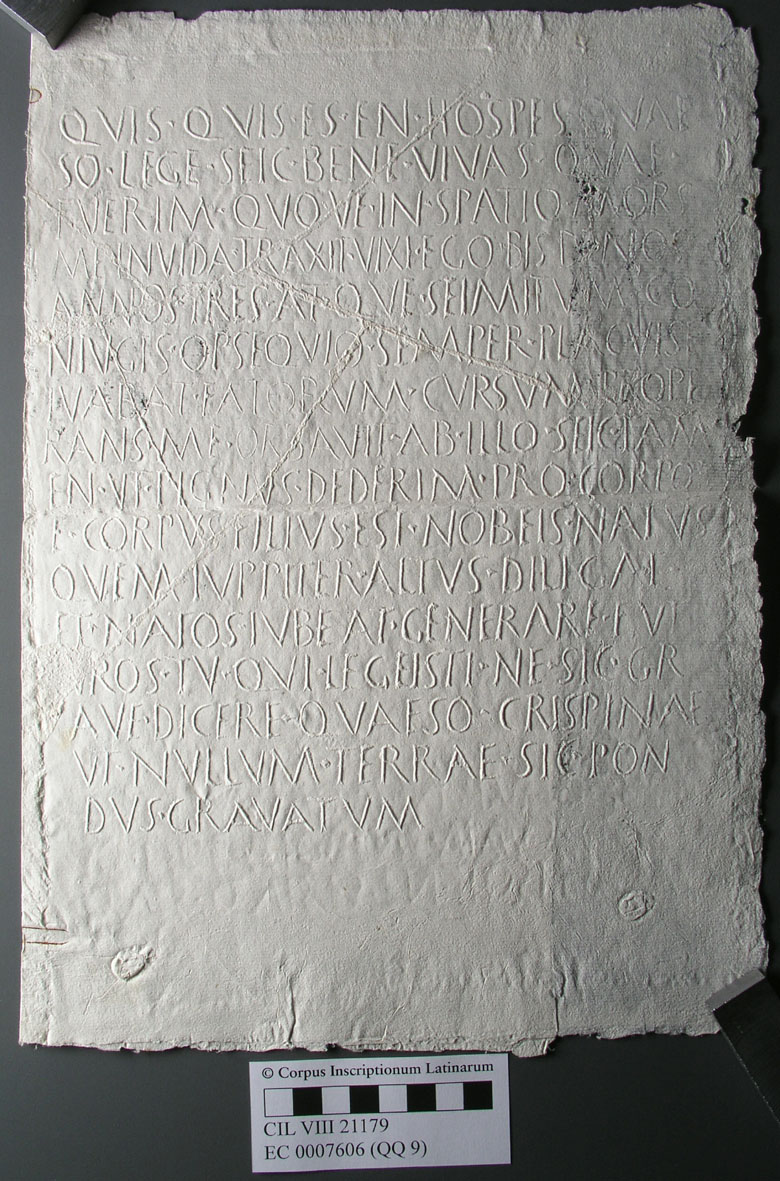 QVIS·QVIS·ES·EN·HOSPES QVAE
SO·LEGE·SEIC·BENE·VIVAS·QVAE·
FVERIM·QVOVE·IN·SPATIO MORS
ME·INVIDA·TRAXIT·VIXI·EGO·BIS DENOS
ANNOS·TRES·ATQVE·SEIMITVM·CO
NIVGIS·OPSEQVIO·SEMPER·PLACVISSE
FATORVM·CVRSVM PROPE
RANS·ME·ORBAVIT·AB·ILLO·SEIC·IAM
EN·VT·PIGNVS·DEDERIM·PRO·CORPOR
E·CORPVS·FILIVS·EST·NOBEIS·NATVS
QVEM·IVPPITER·ALTVS·DILIGAT·
ET·NATOS·IVBEAT·GENERARE·FVT
VROS·TV·QVI·LEGEISTI·NE·SIC·GR
AVE·DICERE·QVAESO·CRISPINAE
VT·NVLLVM·TERRAE·SIC·PON
DVS·GRAVATVM
© Corpus Inscriptionum Latinarum
CIL VIII 21179
EC 0007606 (QQ 9)